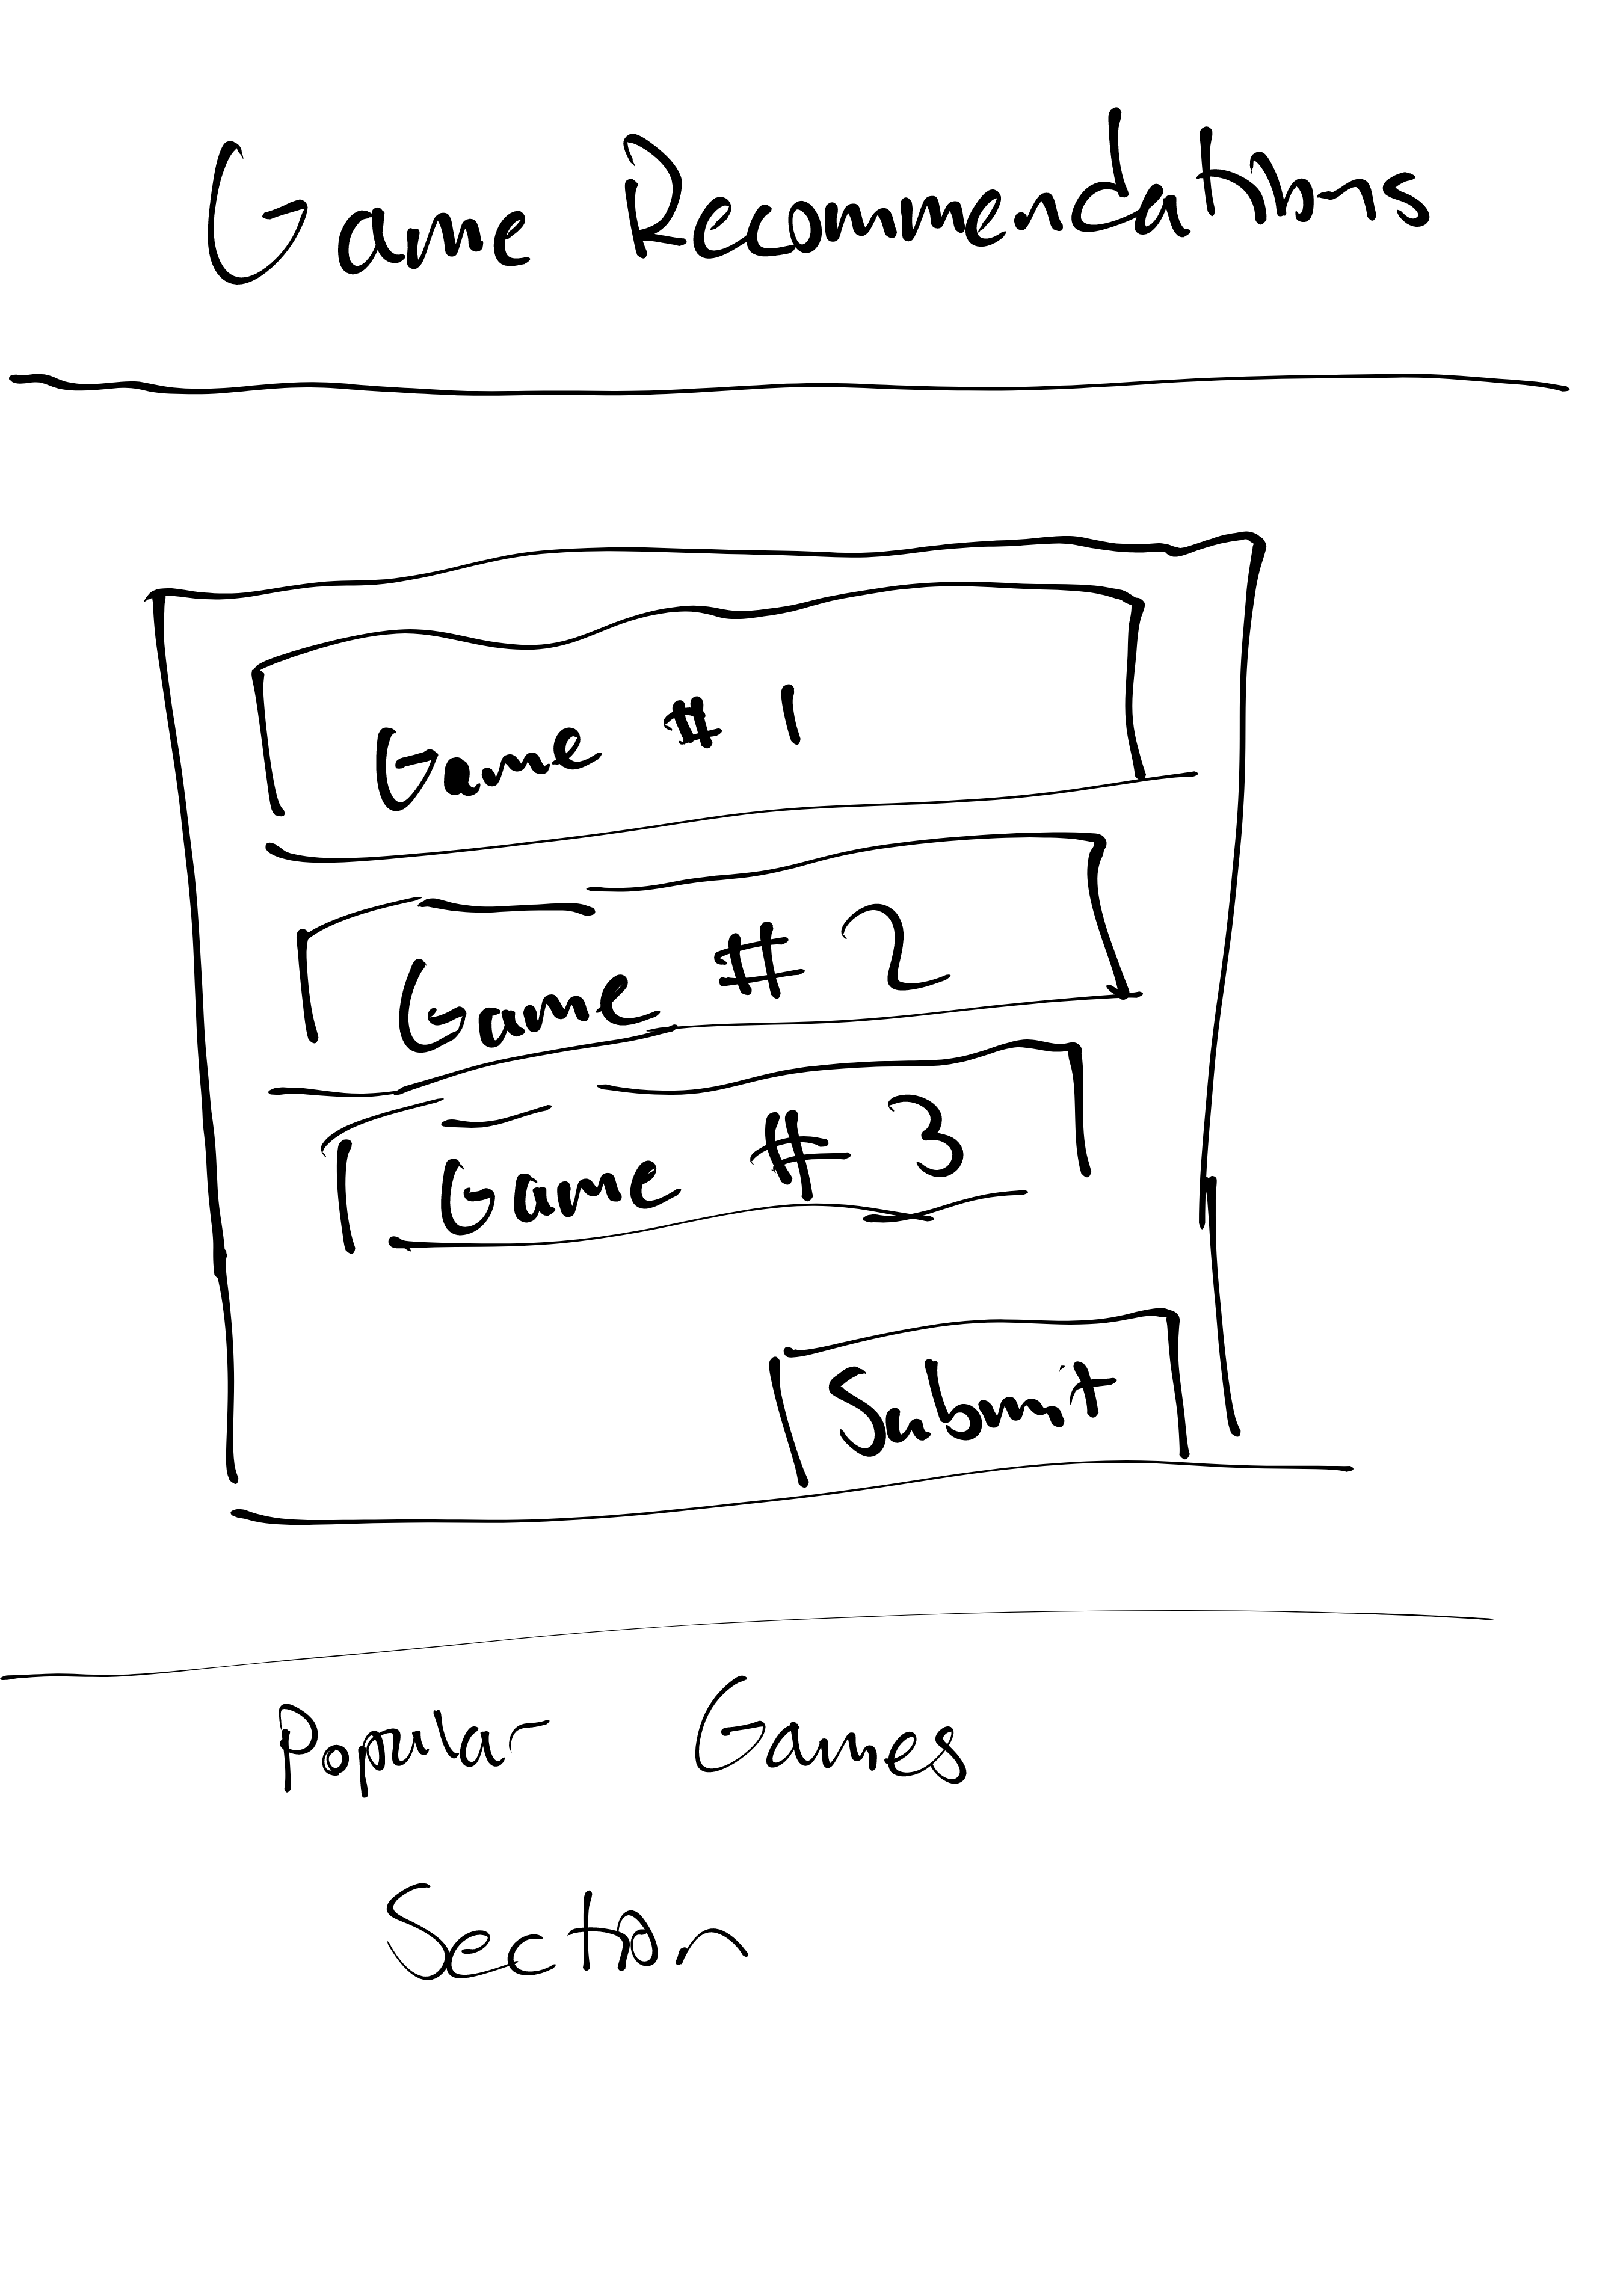 Game Recommendations
Game # 1
Game # 2
Game # 3
Submit
Popular Games
Section